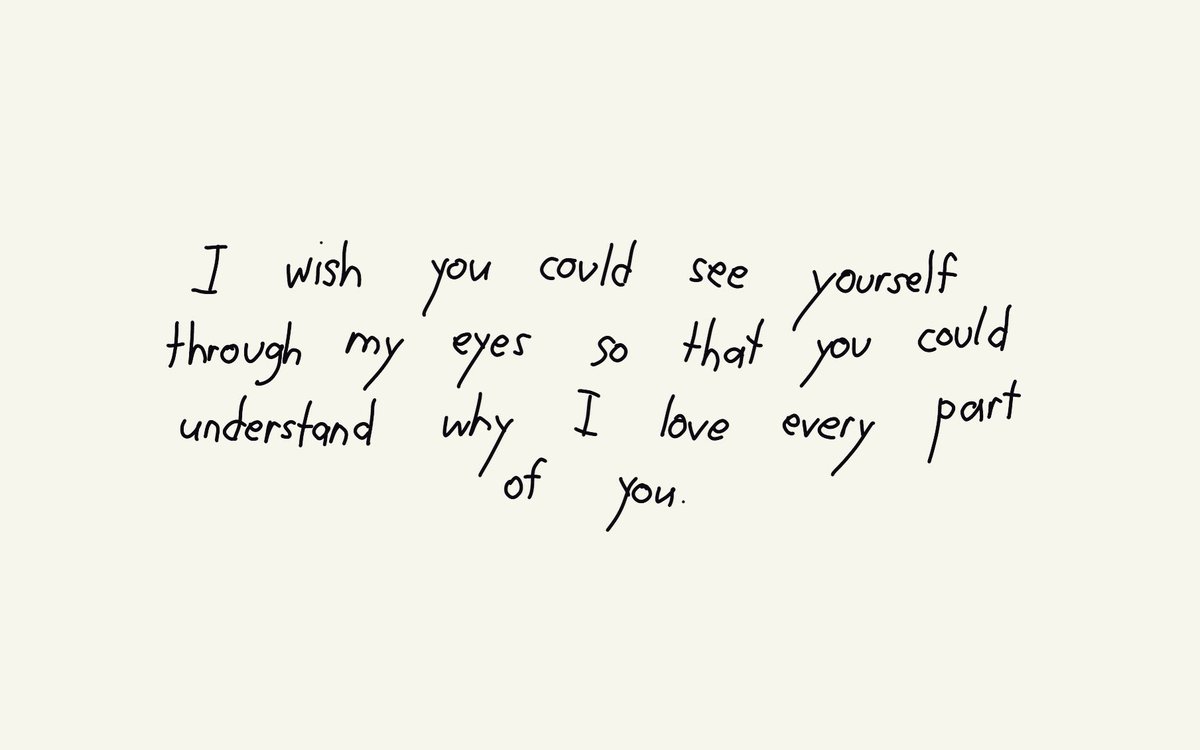 I wish you could see yourself
through my eyes so that you could
understand why I love every part
of you.